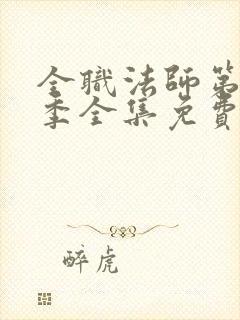 全職法師第
季全集免費
醉虎